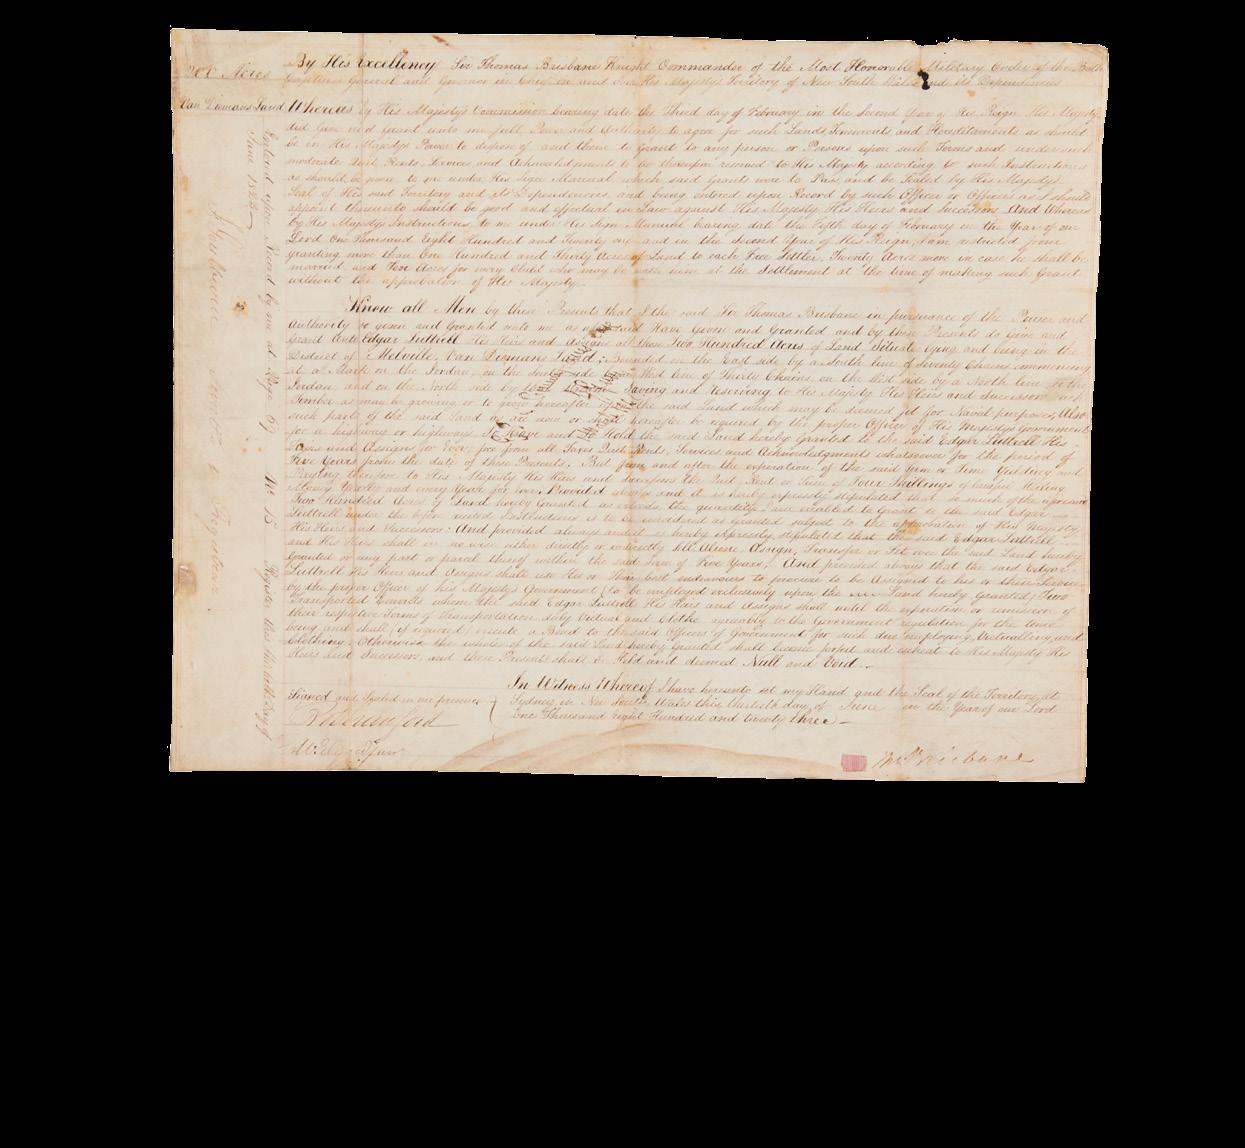 200 Acres
Van Diemans Land
By His Excellency Sir Thomas Brisbane Knight Commander of the Most Honorable Military Order of the Bath
Captain General and Governor in Chief in and Over His Majesty's Territory of New South Wales and its Dependencies
Whereas by His Majesty's Commission bearing date the Third day of February in the Second Year of His Reign His Majesty
did Give and Grant unto me full Power and Authority to agree for such Lands Tenements and Hereditaments as should
be in His Majesty's Power to dispose of and them to Grant to any person or Persons upon such Terms and under such
moderate Quit Rents, Services and Acknowledgments to be thereupon reserved to His Majesty according to such Instructions
as should be given to me under His Sign Manual which said Grants were to Pass and be Sealed by His Majesty's
Seal of His said Territory and its Dependencies, and being entered upon Record by such Officer or Officers as I should
appoint thereunto should be good and effectual in Law against His Majesty His Heirs and Successors And Whereas
by His Majesty's Instructions to me under His Sign Manual bearing date the Fifth day of February in the Year of our
Lord One Thousand Eight Hundred and Twenty one and in the Second Year of His Reign, I am restricted from
granting more than One Hundred and Thirty Acres of Land to each Free Settler, Twenty Acres more in case he shall be
married and Ten Acres for every Child who may be with him at the Settlement at the time of making such Grant
without the approbation of His Majesty.
Know all Men by these Presents that I the said Sir Thomas Brisbane in pursuance of the Power and
Authority so given and Granted unto me as aforesaid Have Given and Granted and by these Presents do Give and
Grant Unto Edgar Luttrell His Heirs and Assigns all those Two Hundred Acres of Land Situate lying and being in the
District of Melville, Van Diemans Land; Bounded on the East side by a South line of Seventy Chains commencing
at a Mark on the Jordan, on the South side by a West line of Thirty Chains, on the West side by a North line to the
Jordan, and on the North side by Saving and Reserving to His Majesty His Heirs and Successors such
Timber as may be growing or to grow hereafter upon the said Land which may be deemed fit for Naval purposes, Also
such parts of the said Land as are now or shall hereafter be required by the proper Officer of His Majesty's Government
for a highway or highways. To Have and to Hold the said Land hereby Granted to the said Edgar Luttrell His
Heirs and Assigns for Ever, free from all Taxes Quit Rents, Services and Acknowledgments whatsoever for the period of
Five Years from the date of these Presents. But from and after the expiration of the said Term or Time Yielding and
Paying therefore to His Majesty His Heirs and Successors the Quit Rent or Sum of Four Shillings of Lawful Sterling
Money Yearly and every Year for Ever. Provided always and it is hereby expressly stipulated that so much of the aforesaid
Two Hundred Acres of Land hereby Granted as exceeds the quantity I am enabled to Grant to the said Edgar
Luttrell under the before recited Instructions is to be considered as Granted subject to the approbation of His Majesty,
His Heirs and Successors: And provided always and it is hereby expressly stipulated that the said Edgar Luttrell
and His Heirs shall in no wise either directly or indirectly Sell, Aliene, Assign, Transfer or Set over the said Land hereby
Granted or any part or parcel thereof within the said term of Five Years. And provided always that the said Edgar
Luttrell His Heirs and Assigns shall use His or Their best endeavours to procure to be Assigned to his or their Service
by the proper Officer of his Majesty's Government (to be employed exclusively upon the Land hereby Granted) Two
Transported Convicts whom the said Edgar Luttrell His Heirs and Assigns shall until the expiration or remission of
their respective Terms of Transportation duly Victual and Clothe agreeably to the Government regulation for the time
being and shall (if required) execute a Bond to the said Officer of Government for such due employing, Victualling and
Clothing. Otherwise the whole of the said Land hereby Granted shall become forfeit and escheat to His Majesty His
Heirs and Successors, and these Presents shall be Held and deemed Null and Void.
In Witness Whereof I have hereunto set my Hand and the Seal of the Territory, at
Sydney in New South Wales this thirtieth day of June in the Year of our Lord
One Thousand Eight Hundred and twenty three
Signed and Sealed in our presence
Thos Brisbane
Entered upon Record by me at Page 69 No 15 Register this thirtieth Day of
June 1823